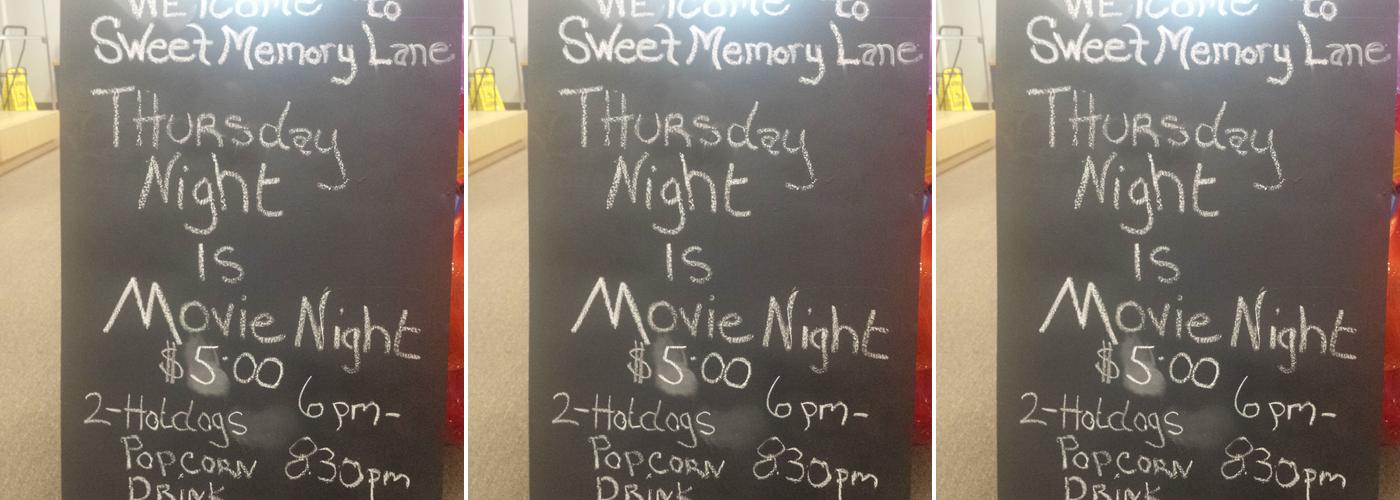 WELCOME to
Sweet Memory Lane
THURSday
Night
IS
Movie Night
$5.00
2-Hotdogs 6pm-
POPCORN 8:30pm
DRINK
WELCOME to
Sweet Memory Lane
THURSday
Night
IS
Movie Night
$5.00
2-Hotdogs 6pm-
POPCORN 8:30pm
DRINK
WELCOME to
Sweet Memory Lane
THURSday
Night
IS
Movie Night
$5.00
2-Hotdogs 6pm-
POPCORN 8:30pm
DRINK